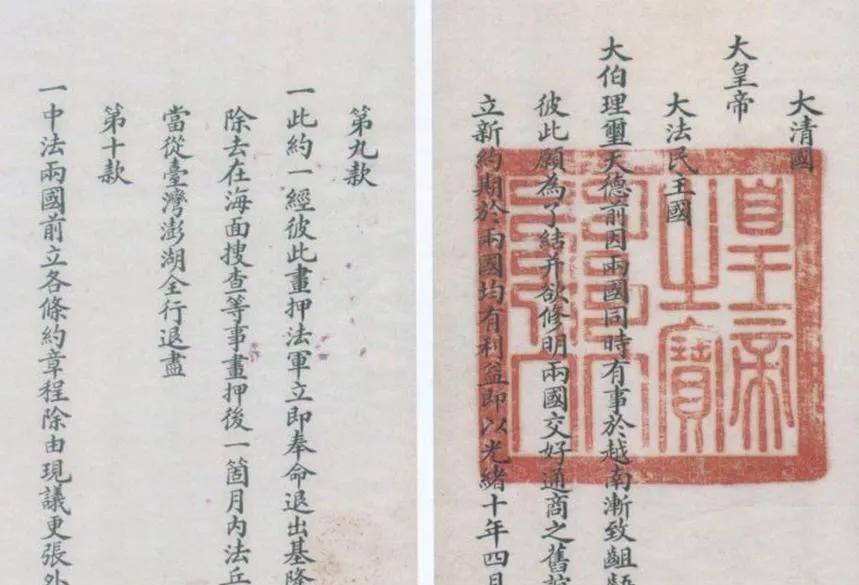 大清國
大皇帝
大法民主國
大伯理璽天德前因兩國同時有事於越南漸致齟齬
彼此願為了結并欲修明兩國交好通商之舊
立新約期於兩國均有利益即以光緒十年四月
皇帝之寶
第九款
一此約一經彼此畫押法軍立即奉命退出基隆
除去在海面搜查等事畫押後一箇月內法兵
當從臺灣澎湖全行退盡
第十款
一中法兩國前立各條約章程除由現議更張外